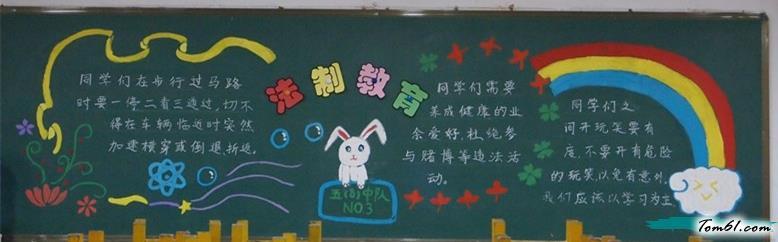 同学们在步行过马路
时要一停二看三通过,切不
得在车辆临近时突然
加速横穿或倒退折返。
法制教育
五(3)中队
NO3
同学们需要
养成健康的业
余爱好,杜绝参
与赌博等违法活
动。
同学们之
间开玩笑要有
度,不要开有危险
的玩笑,以免有意外,
我们应该以学习为主
Tom61.com